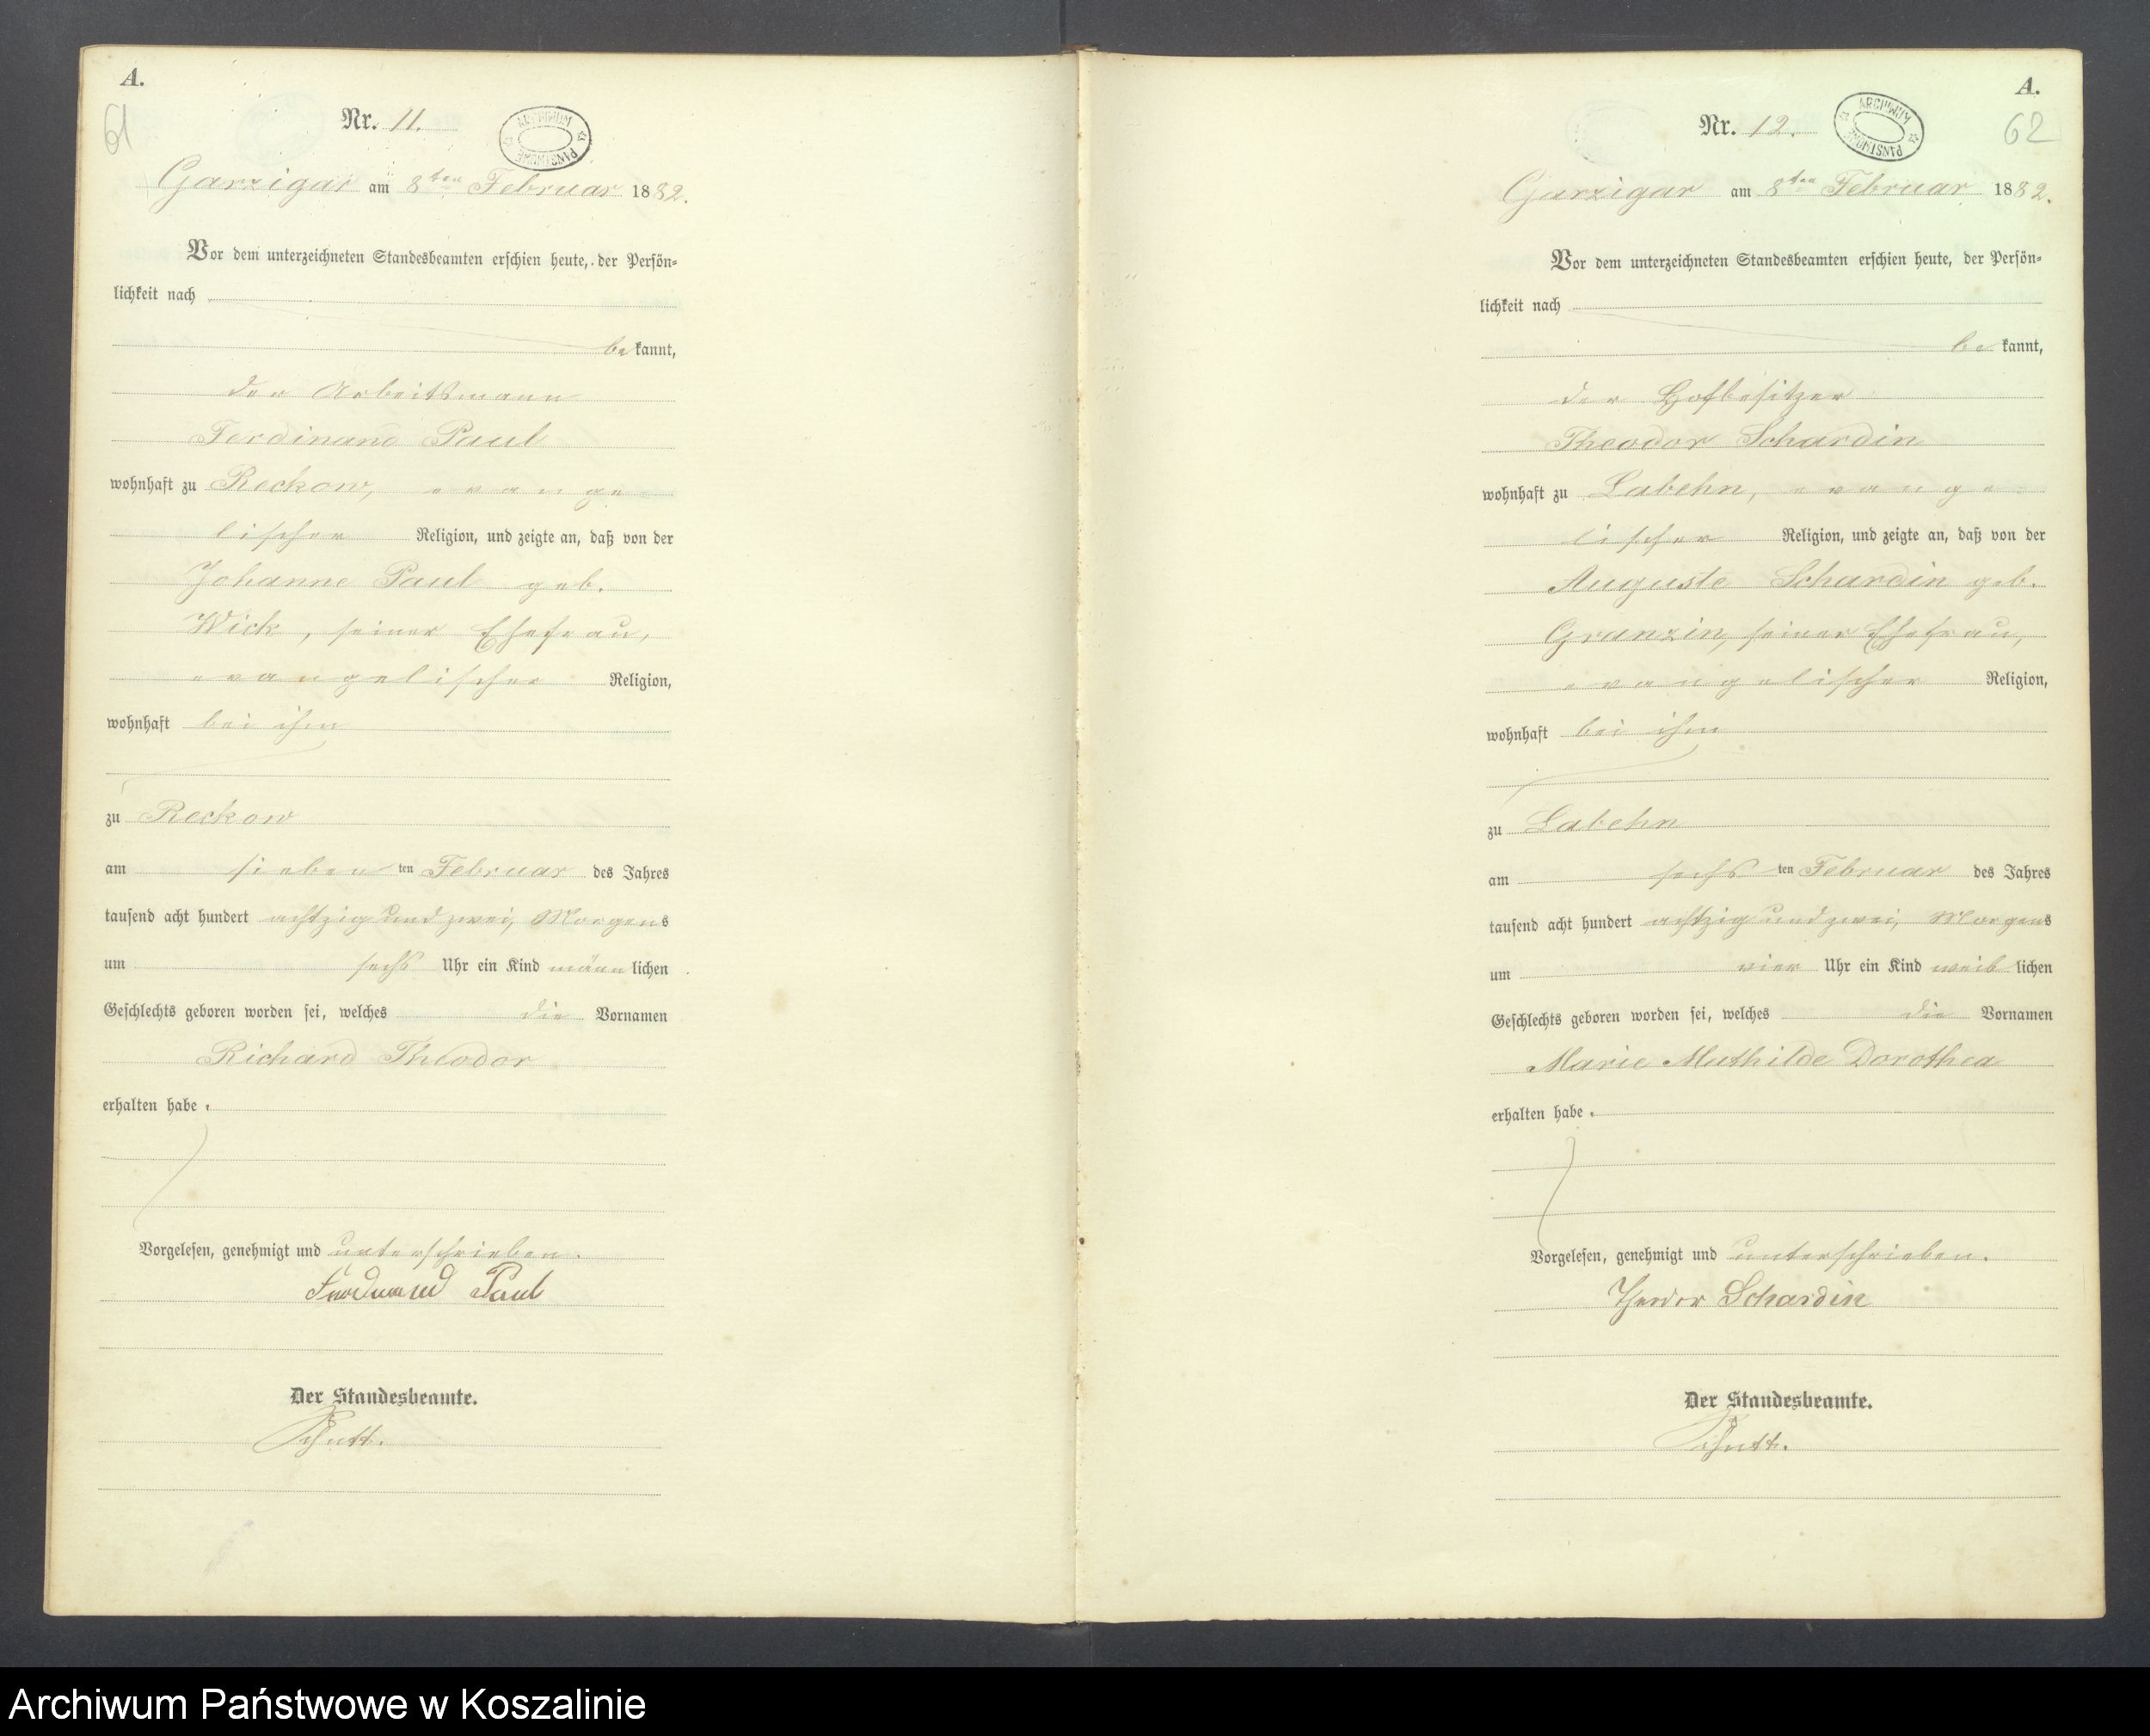 A.
61
Nr. 11.
ARCHIWUM PAŃSTWOWE
Garzigar am 8ten Februar 1882.
Vor dem unterzeichneten Standesbeamten erschien heute, der Persön-
lichkeit nach
bekannt,
der Arbeitsmann
Ferdinand Paul
wohnhaft zu Reckow, evange-
lischer Religion, und zeigte an, daß von der
Johanne Paul geb.
Wick, seiner Ehefrau,
evangelischer Religion,
wohnhaft bei ihm
zu Reckow
am sieben ten Februar des Jahres
tausend acht hundert achtzig und zwei, Morgens
um sechs Uhr ein Kind männlichen
Geschlechts geboren worden sei, welches die Vornamen
Richard Theodor
erhalten habe.
Vorgelesen, genehmigt und unterschrieben.
Ferdinand Paul
Der Standesbeamte.
A.
62
Nr. 12.
ARCHIWUM PAŃSTWOWE
Garzigar am 8ten Februar 1882.
Vor dem unterzeichneten Standesbeamten erschien heute, der Persön-
lichkeit nach
bekannt,
der Hofbesitzer
Theodor Schardin
wohnhaft zu Labehn, evange-
lischer Religion, und zeigte an, daß von der
Auguste Schardin geb.
Granzin, seiner Ehefrau,
evangelischer Religion,
wohnhaft bei ihm
zu Labehn
am sechs ten Februar des Jahres
tausend acht hundert achtzig und zwei, Morgens
um vier Uhr ein Kind weiblichen
Geschlechts geboren worden sei, welches die Vornamen
Marie Mathilde Dorothea
erhalten habe.
Vorgelesen, genehmigt und unterschrieben.
Theodor Schardin
Der Standesbeamte.
Archiwum Państwowe w Koszalinie